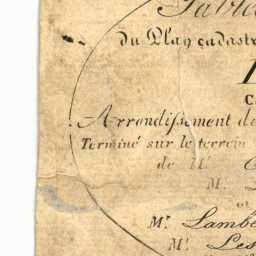 Table
du Plan cadastr
C
Arrondissement de
Terminé sur le terrein
de Mr.
M.
et
Mr. Lambe
Mr. Les